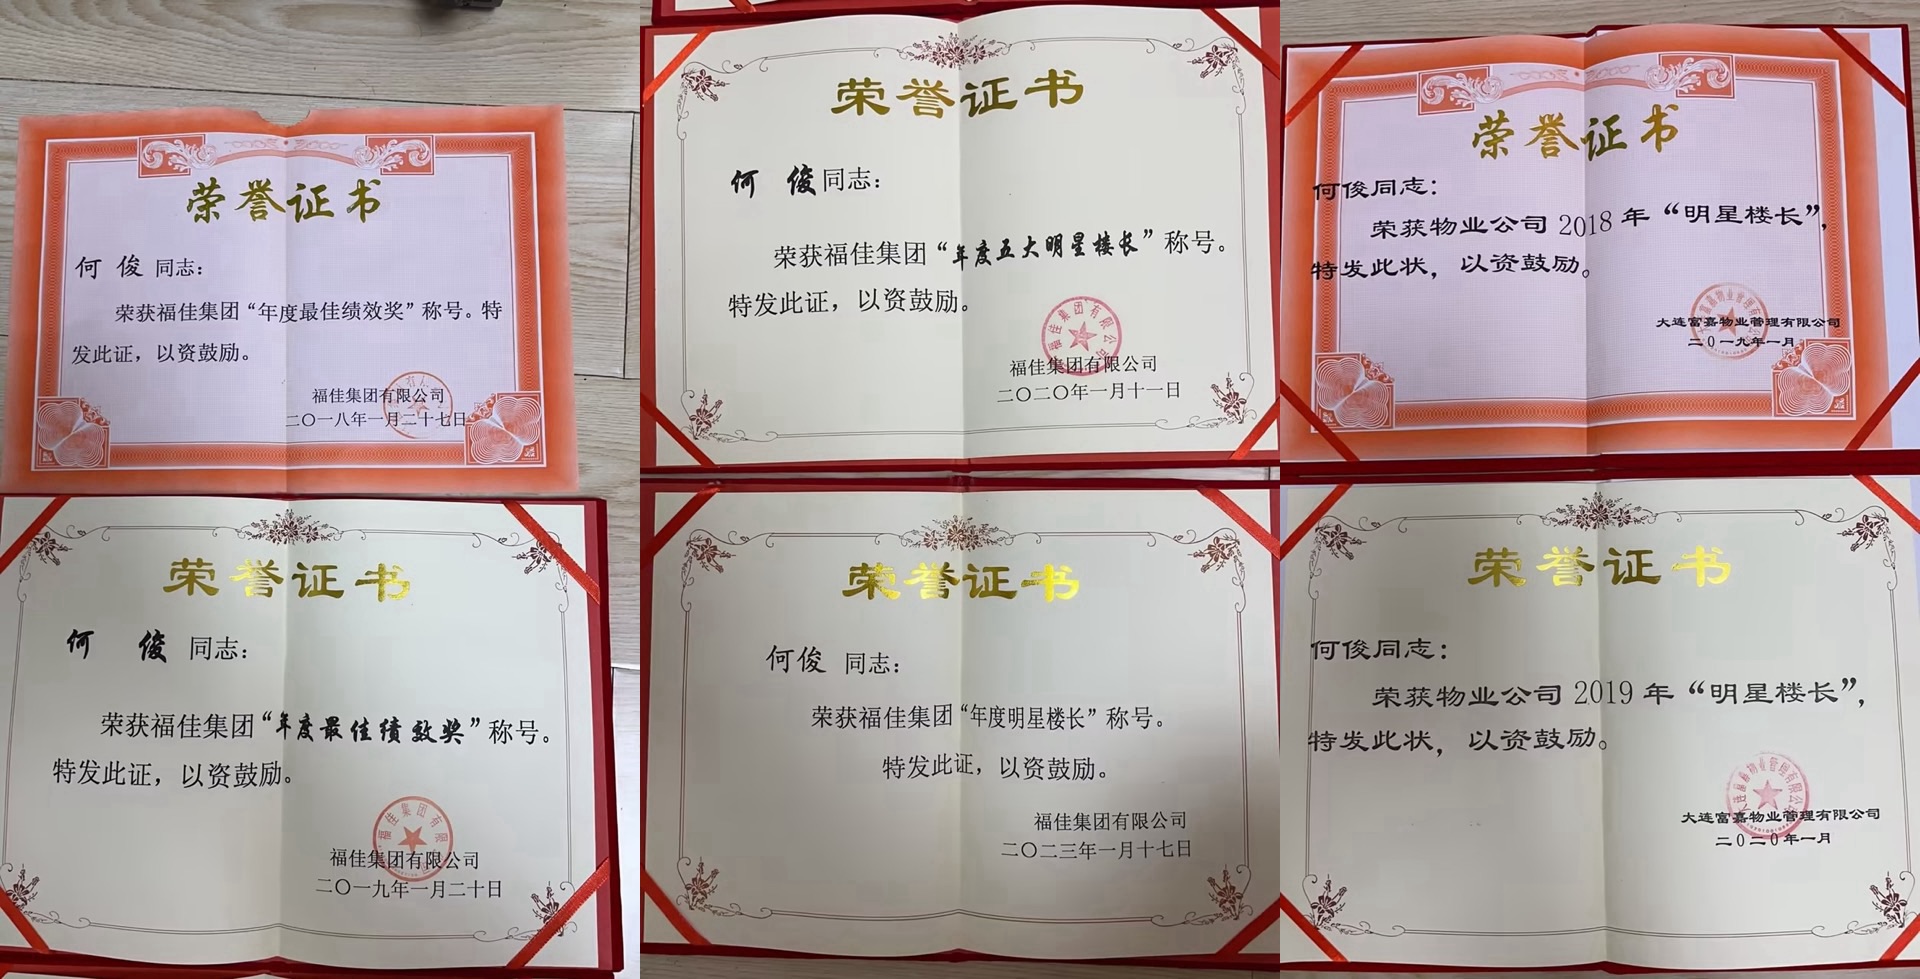 荣誉证书
何 俊 同志：
荣获福佳集团“年度最佳绩效奖”称号。特
发此证，以资鼓励。
福佳集团有限公司
二〇一八年一月二十七日
荣誉证书
何 俊同志：
荣获福佳集团“年度五大明星楼长”称号。
特发此证，以资鼓励。
福佳集团有限公司
福佳集团有限公司
二〇二〇年一月十一日
荣誉证书
何俊同志：
荣获物业公司2018年“明星楼长”，
特发此状，以资鼓励。
大连富嘉物业管理有限公司
二〇一九年一月
荣誉证书
何 俊 同志：
荣获福佳集团“年度最佳绩效奖”称号。
特发此证，以资鼓励。
福佳集团有限
福佳集团有限公司
二〇一九年一月二十日
荣誉证书
何俊 同志：
荣获福佳集团“年度明星楼长”称号。
特发此证，以资鼓励。
福佳集团有限公司
二〇二三年一月十七日
荣誉证书
何俊同志：
荣获物业公司2019年“明星楼长”，
特发此状，以资鼓励。
大连富嘉物业管理有限公司
二〇二〇年一月